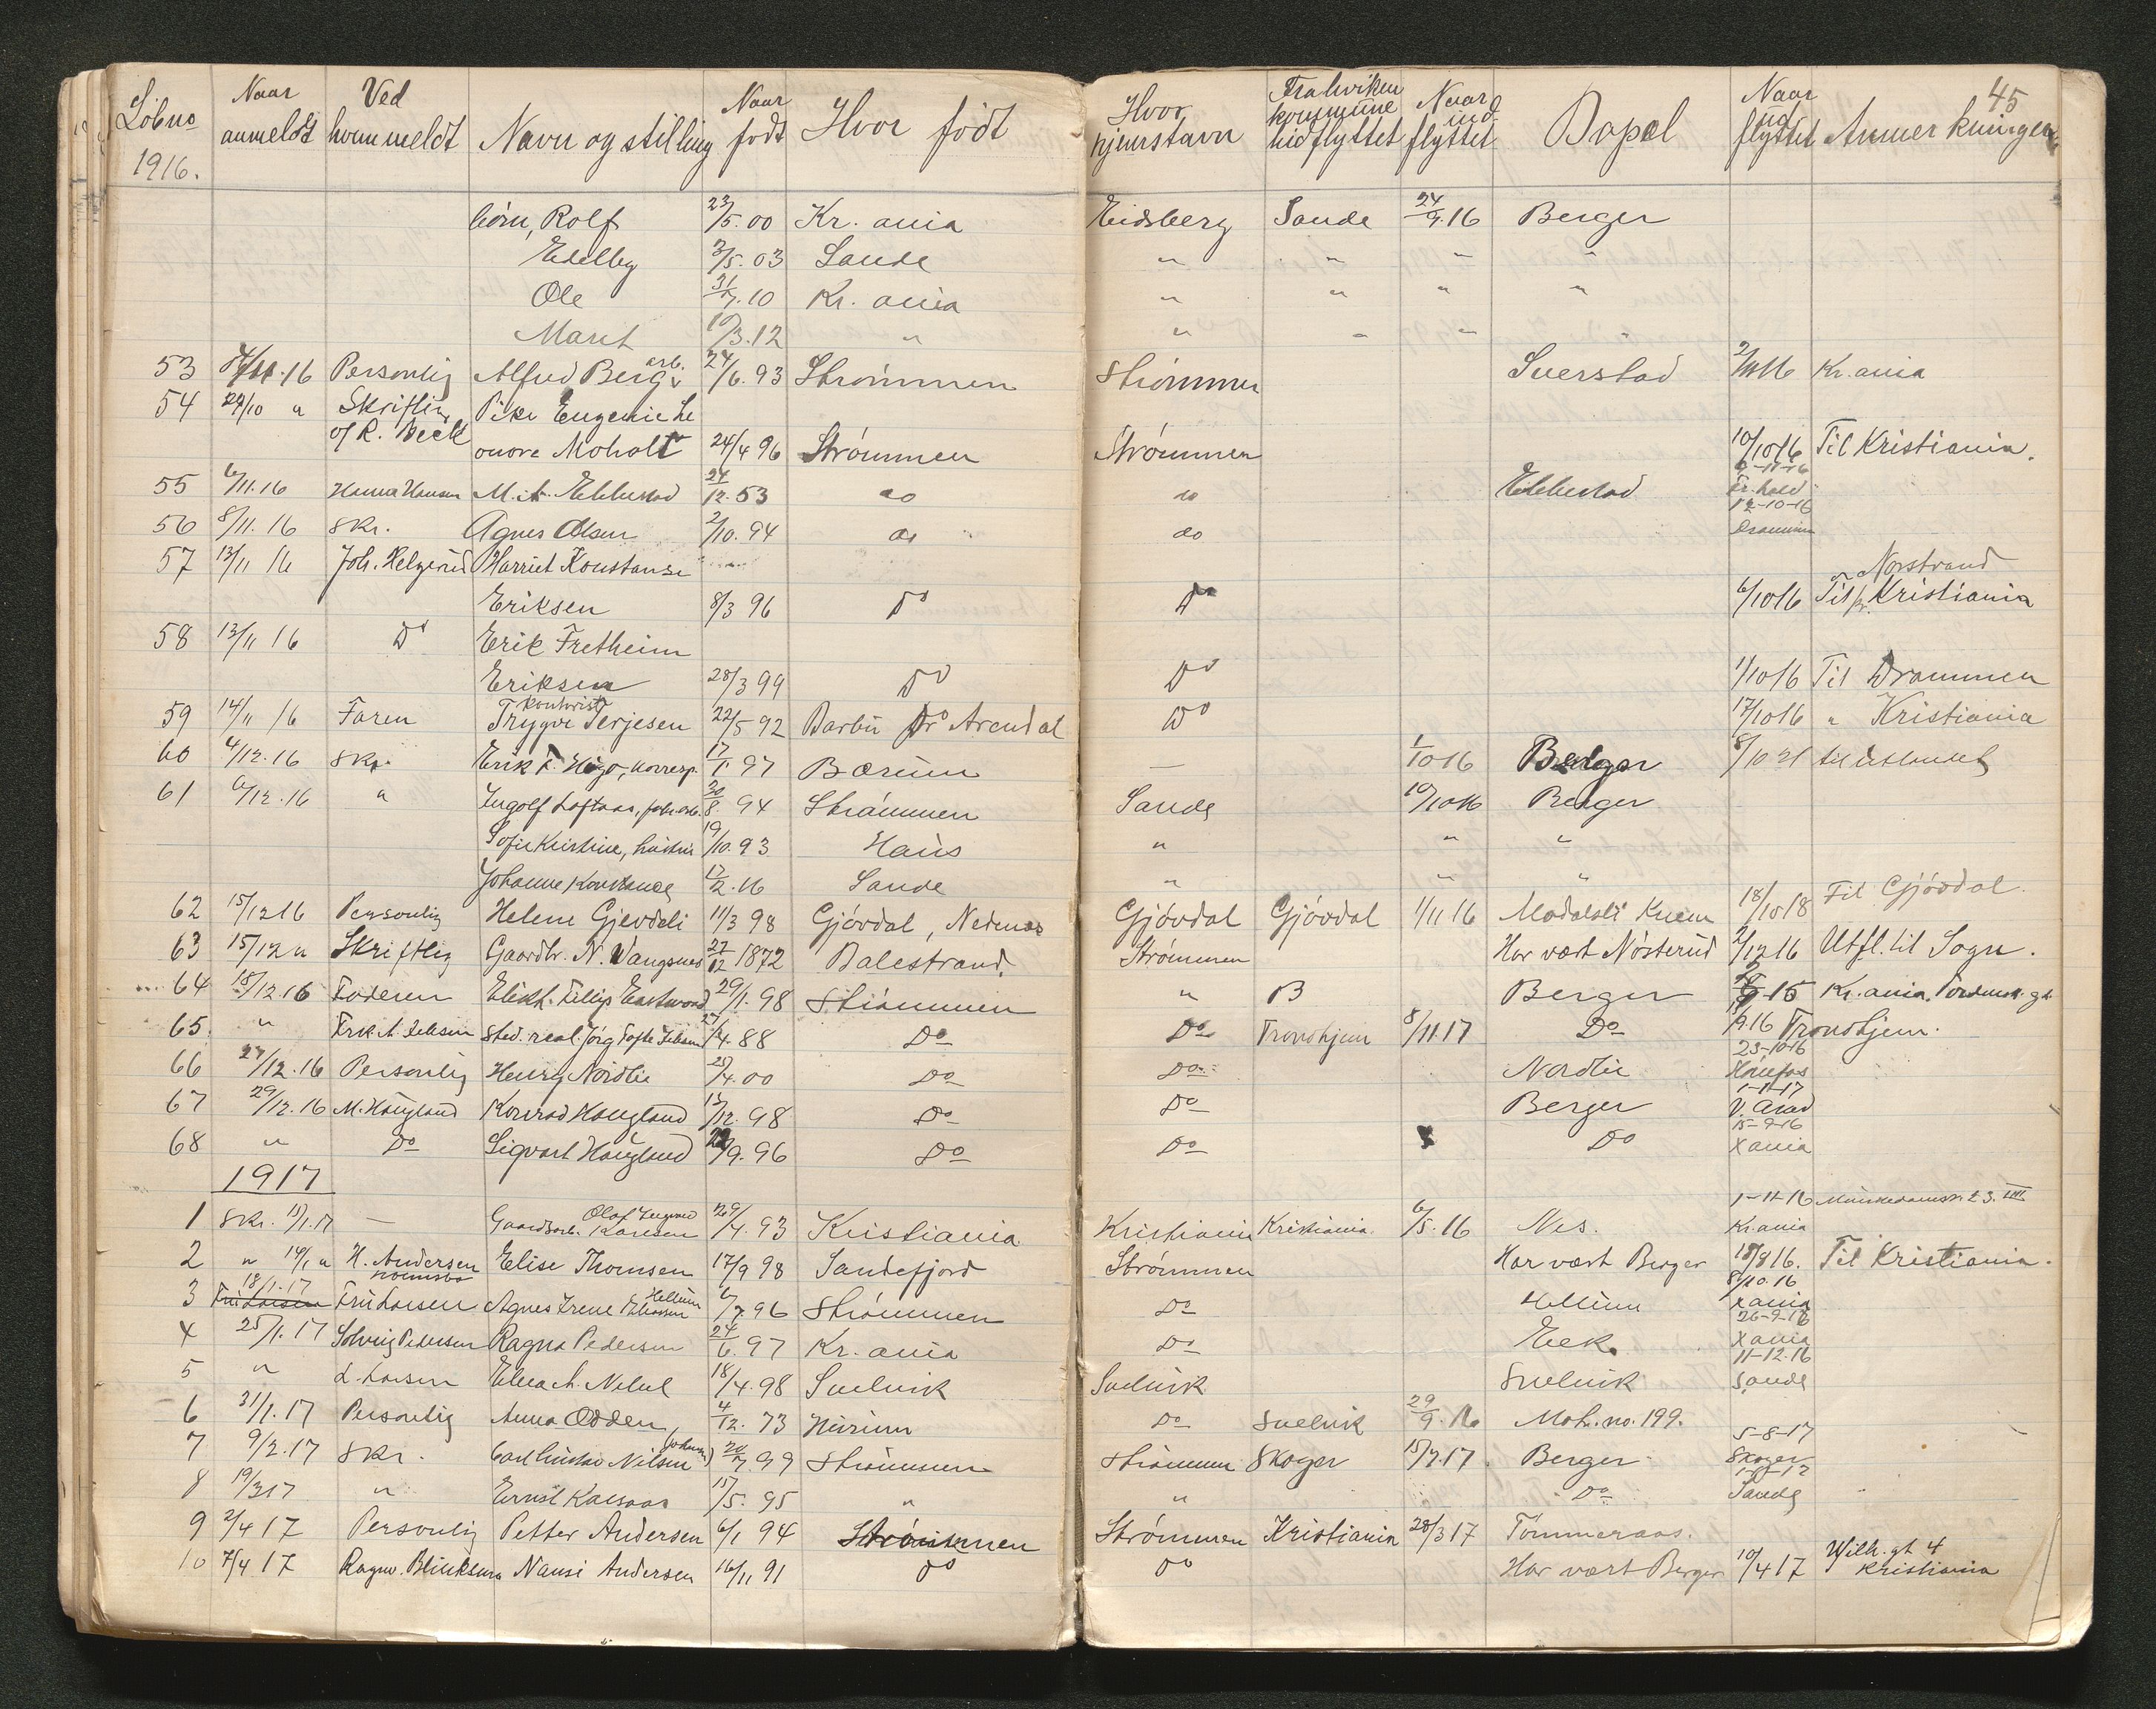 45
Löbno Naar anmeldt Ved hvem meldt Navn og stilling Naar födt Hvor födt Hvor hjemstavn Fra hvilken kommune indflyttet Naar indflyttet Bopæl Naar udflyttet Anmerkninger
1916.
börn, Rolf 23/5.00 Kr.ania Eidsberg Sande 24/9.16 Berger
Edelby 3/5.03 Sande " " " "
Ole 31/7.10 Kr.ania " " " "
Marit 10/3.12 " " " "
53 Personlig Alfred Berg arb. 24/6.93 Strömmen Strömmen Sverstad Kr.ania
54 24/10 " Skriftlig Pike Eugenie Le
of R. Beck onore Moholt 24/4 96 Strömmen Strömmen 10/10 16 Til Kristiania.
55 6/11.16 Hanna Hansen M.A. Ebbestad 24/12.53 do do Ebbestad
56 8/11.16 Skr. Agnes Olsen 2/10.94 do do 12-10-16 Drammen
57 13/11 16 Joh. Helgerud Harriet Konstanse Norstrand
Eriksen 8/3 96 Do Do 6/10 16 Til pr. Kristiania
58 13/11 16 Do Erik Fretheim
Eriksen 28/3 99 Do Do 1/10 16 Til Drammen
59 14/11 16 Faren kontorist Trygve Terjesen 22/5 92 Barbu pr Arendal Do 17/10 16 " Kristiania
60 4/12.16 Skr. Erik F. korresp. 17/1 97 Bærum — 1/10 16 Berger 8/10 21 til utlandet
61 6/12.16 " Ingolf Loftaas, fabr.arb. 30/8. 94 Strömmen Sande 10/10 16 Berger
Sofie Kristine, hustru 19/10.93 Haus " " "
Johanne Konstance 17/2.16 Sande " " "
62 15/12 16 Personlig Helene Gjevdeli 11/3 98 Gjövdal, Nedenæs Gjövdal Gjövdal 1/11 16 Knem 18/10 18 Til Gjövdal.
63 15/12 " Skriftlig Gaardbr. N. Vangsnes 27/12 1872 Balestrand. Strömmen Har vært Nösterud 2/12 16 Utfl. til Sogn.
64 18/12.16 Faderen Elikh. Fillip Eastwood 29/1.98 Strömmen " B Berger Kr.ania.
65. " Frk. A. Jebsen Stud. real. Jörg Tofte Jebsen 27/4.88 Do Do Trondhjem 8/11.17 Do Trondhjem.
66 27/12.16 Personlig Henry Nordlie 25/4.00 Do Do Nordlie 23-10-16 Hönefos
67 29/12.16 M. Haugland Konrad Haugland 13/12.98 Do Do Berger 1-11-17
68 " Do Sigvart Haugland 9.96 Do Do Do 15-9-16 Xania
1917
1 Skr. 11/1.17 — Gaardsarb. Olaf Karlsen 29/4.93 Kristiania Kristiania Kristiania 6/5.16 Nes. 1-11-16 Kr.ania
2 " 14/1 " H. Andersen Elise Thomsen 17/9 98 Sandefjord Strömmen Har vært Berger 18/8 16. Til Kristiania.
3 18/1.17 Fru Larsen Fru Larsen Agnes Irene Hellum 6/7.96 Strömmen Do Hellum 8/10.16 Xania
4 25/1.17 Solveig Pedersen Ragna Pedersen 24/6.97 Kr.ania Do Eek. 26-9-16 Xania
5 " L. Larsen 18/4.98 Svelvik Svelvik Svelvik 11-12.16 Sande
6 31/1.17 Personlig Anna Odden, 4/12.73 Hurum Do Svelvik 29/9.16 Mat.no. 199.
7 9/2.17 Skr. Carl Nilsen 20/7.99 Strömmen Strömmen Skoger 15/2.17. Berger 5-8-17 Skoger
8 19/3 17 " Ernst Karsaas 15/5.95 " " Do Sande
9 2/4 17 Personlig Petter Andersen 6/1 94 Strömmen Strömmen Kristiania 28/3 17 Tömmeraas.
10 7/4 17 Nansi Andersen 16/11 91 Do Do Har vært Berger 10/4 17 Wilh.gt 4 Kristiania